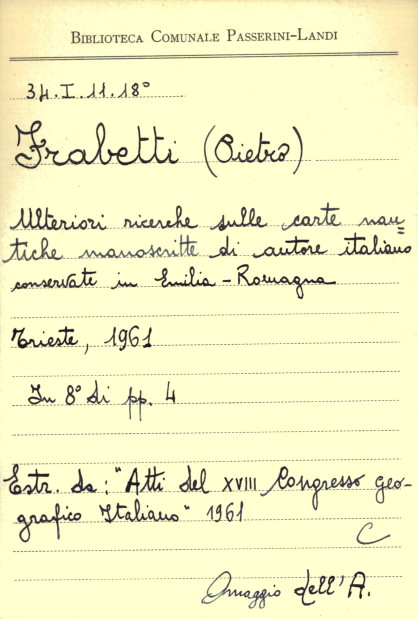 BIBLIOTECA COMUNALE PASSERINI-LANDI
34.I.11.18°
Frabetti (Pietro)
Ulteriori ricerche sulle carte nau=
tiche manoscritte di autore italiano
conservate in Emilia-Romagna
Trieste, 1961
In 8° di pp. 4
Estr. da: "Atti del XVIII Congresso geo-
grafico Italiano" 1961
C
Omaggio dell'A.